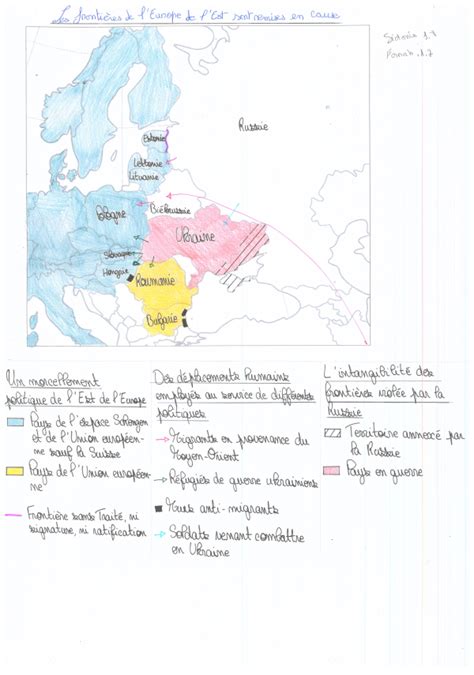 Les frontières de l'Europe de l'Est sont remises en cause
1.7
Russie
Estonie
Lettonie
Lituanie
Pologne
Biélorussie
Ukraine
Slovaquie
Hongrie
Roumanie
Bulgarie
Un morcellement
politique de l'Est de l'Europe
Pays de l'espace Schengen
et de l'Union européen-
ne sauf la Suisse
Pays de l'Union européen-
ne
Frontière sans Traité, ni
signature, ni ratification
Des déplacements humains
employés au source de différentes
politiques
Migrants en provenance du
Moyen-Orient
Réfugiés de guerre ukrainiens
Murs anti-migrants
Soldats venant combattre
en Ukraine
L'intangibilité des
frontières violée par la
Russie
Territoire annexé par
la Russie
Pays en guerre